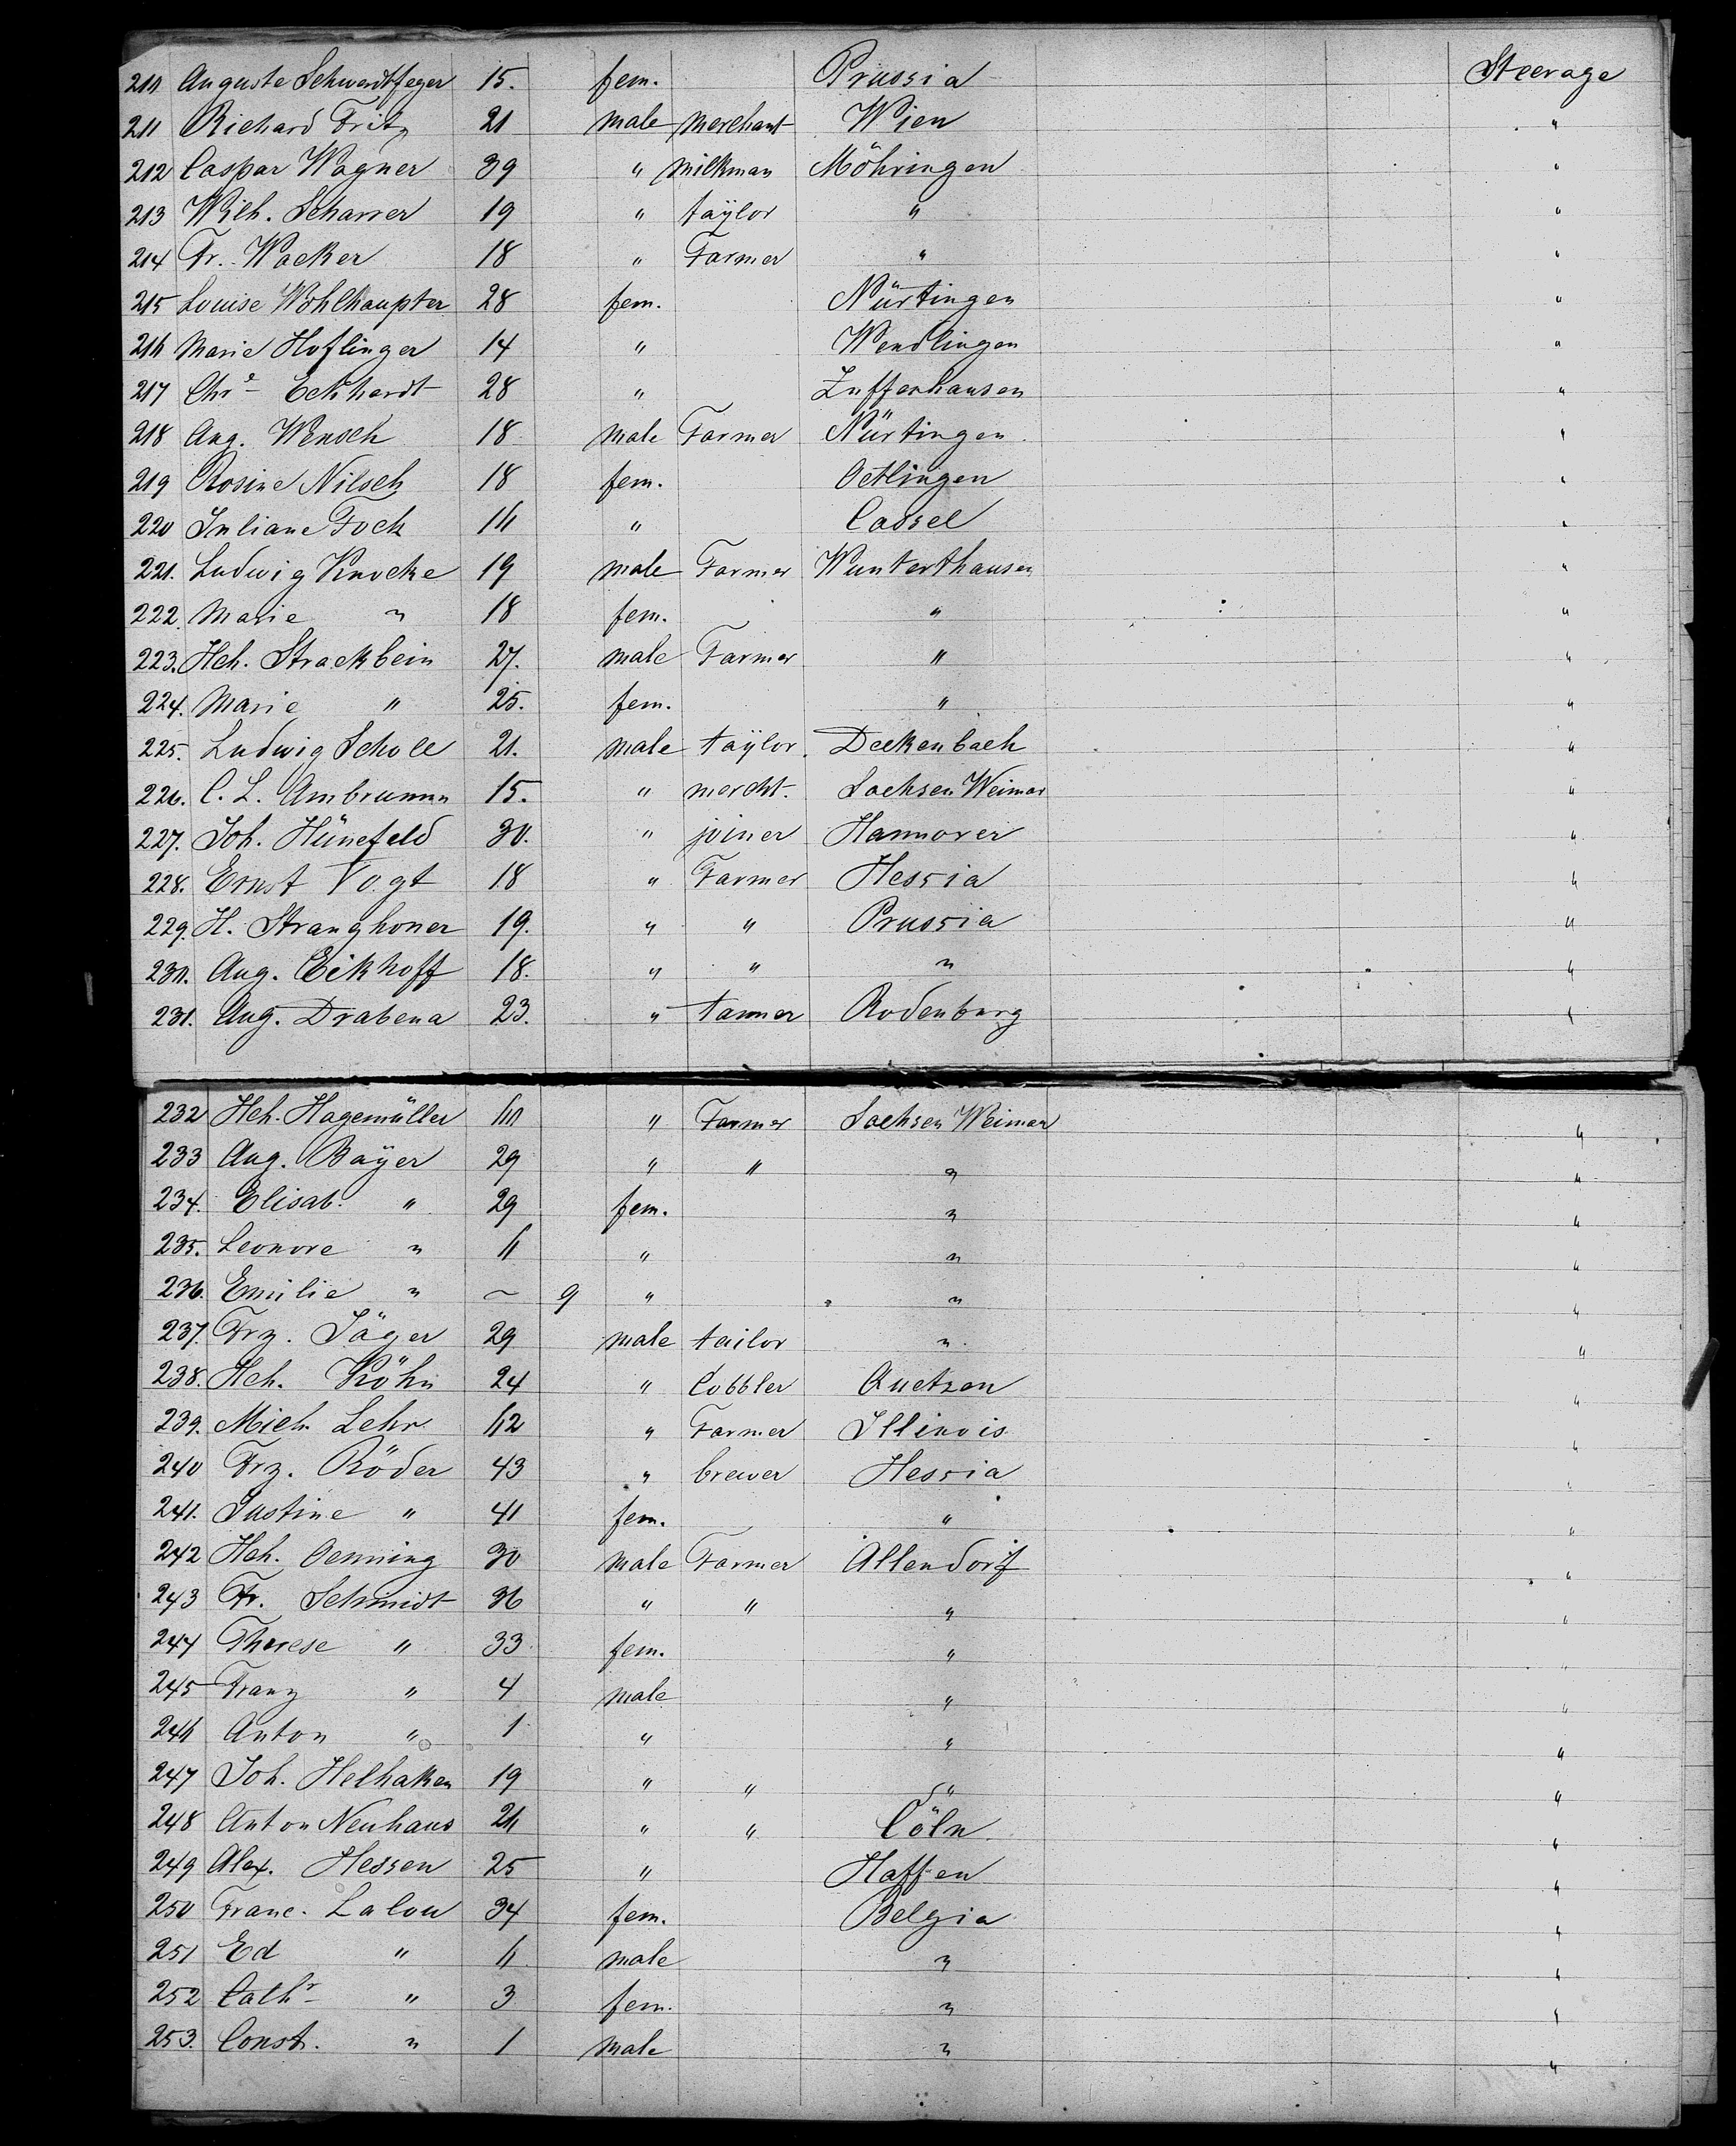 210 Auguste Schwerdtfeger 15. fem. Prussia Steerage
211 Richard Fritz 21 male merchant Wien "
212 Caspar Wagner 39 " milkman Möhringen "
213 Wilh. Scharrer 19 " taÿlor " "
214 Fr. Wacker 18 " Farmer " "
215 Louise Wohlhaupter 28 fem. Nürtingen "
216 Marie Hoflinger 14 " Wendlingen "
217 Chr e Eckhardt 28 " Zuffenhausen "
218 Aug. Wensch 18 male Farmer Nürtingen "
219 Rosine Nilsch 18 fem. Oetlingen "
220 Juliane Fock 16 " Cassel "
221. Ludwig Knocke 19 male Farmer Wunterthausen "
222. Marie " 18 fem. " "
223. Hch. Strackbein 27. male Farmer " "
224. Marie " 25. fem. " "
225. Ludwig Scholl 21. male taÿlor. Deckenbach "
226. C. L. Ambrunn 15. " mercht. Sachsen Weimar "
227. Joh. Hünefeld 30. " joiner Hannover "
228. Ernst Vogt 18 " Farmer Hessia "
229. H. Stranghoner 19. " " Prussia "
230. Aug. Eickhoff 18. " " " "
231. Aug. Drabena 23. " tanner Rodenburg "
232 Hch. Hagemüller 60 " Farmer Sachsen Weimar "
233 Aug. Baÿer 29 " " " "
234. Elisab. " 29 fem. " "
235. Leonore " 6 " " "
236. Emilie " ~ 9 " " "
237. Frz. Jäger 29 male tailor " "
238. Hch. Köhn 24 " Cobbler Auetzen "
239. Mich. Lehr 62 " Farmer Illinois "
240 Frz. Röder 43 " brewer Hessia "
241. Justine " 41 fem. " "
242 Hch. Oenning 30 male Farmer Allendorf "
243 Fr. Schmidt 36 " " " "
244 Therese " 33 fem. " "
245 Franz " 4 male " "
246 Anton " 1 " " "
247 Joh. Helhaken 19 " " " "
248 Anton Neuhaus 26 " " Cöln "
249 Alex. Hessen 25 " Haffen "
250 Franc. Lalou 34 fem. Belgia "
251 Ed " 6 male " "
252 Cathr " 3 fem. " "
253. Const. " 1 male " "